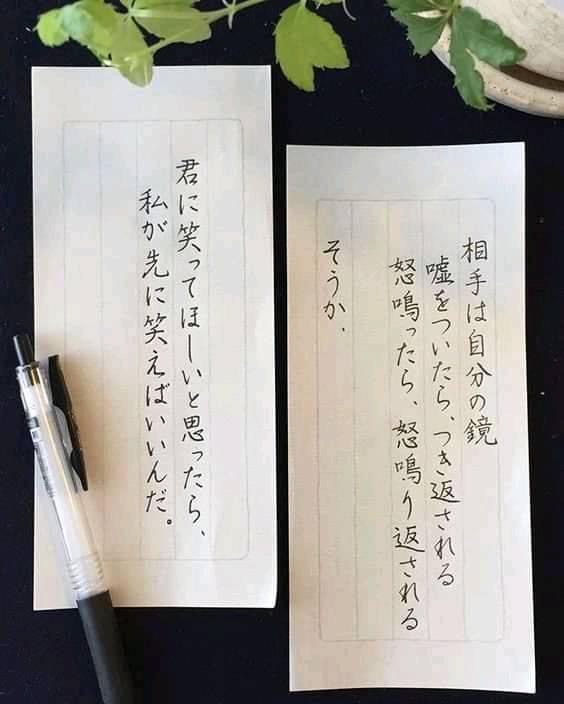 相手は自分の鏡
嘘をついたら、つき返される
怒鳴ったら、怒鳴り返される
そうか、
君に笑ってほしいと思ったら、
私が先に笑えばいいんだ。